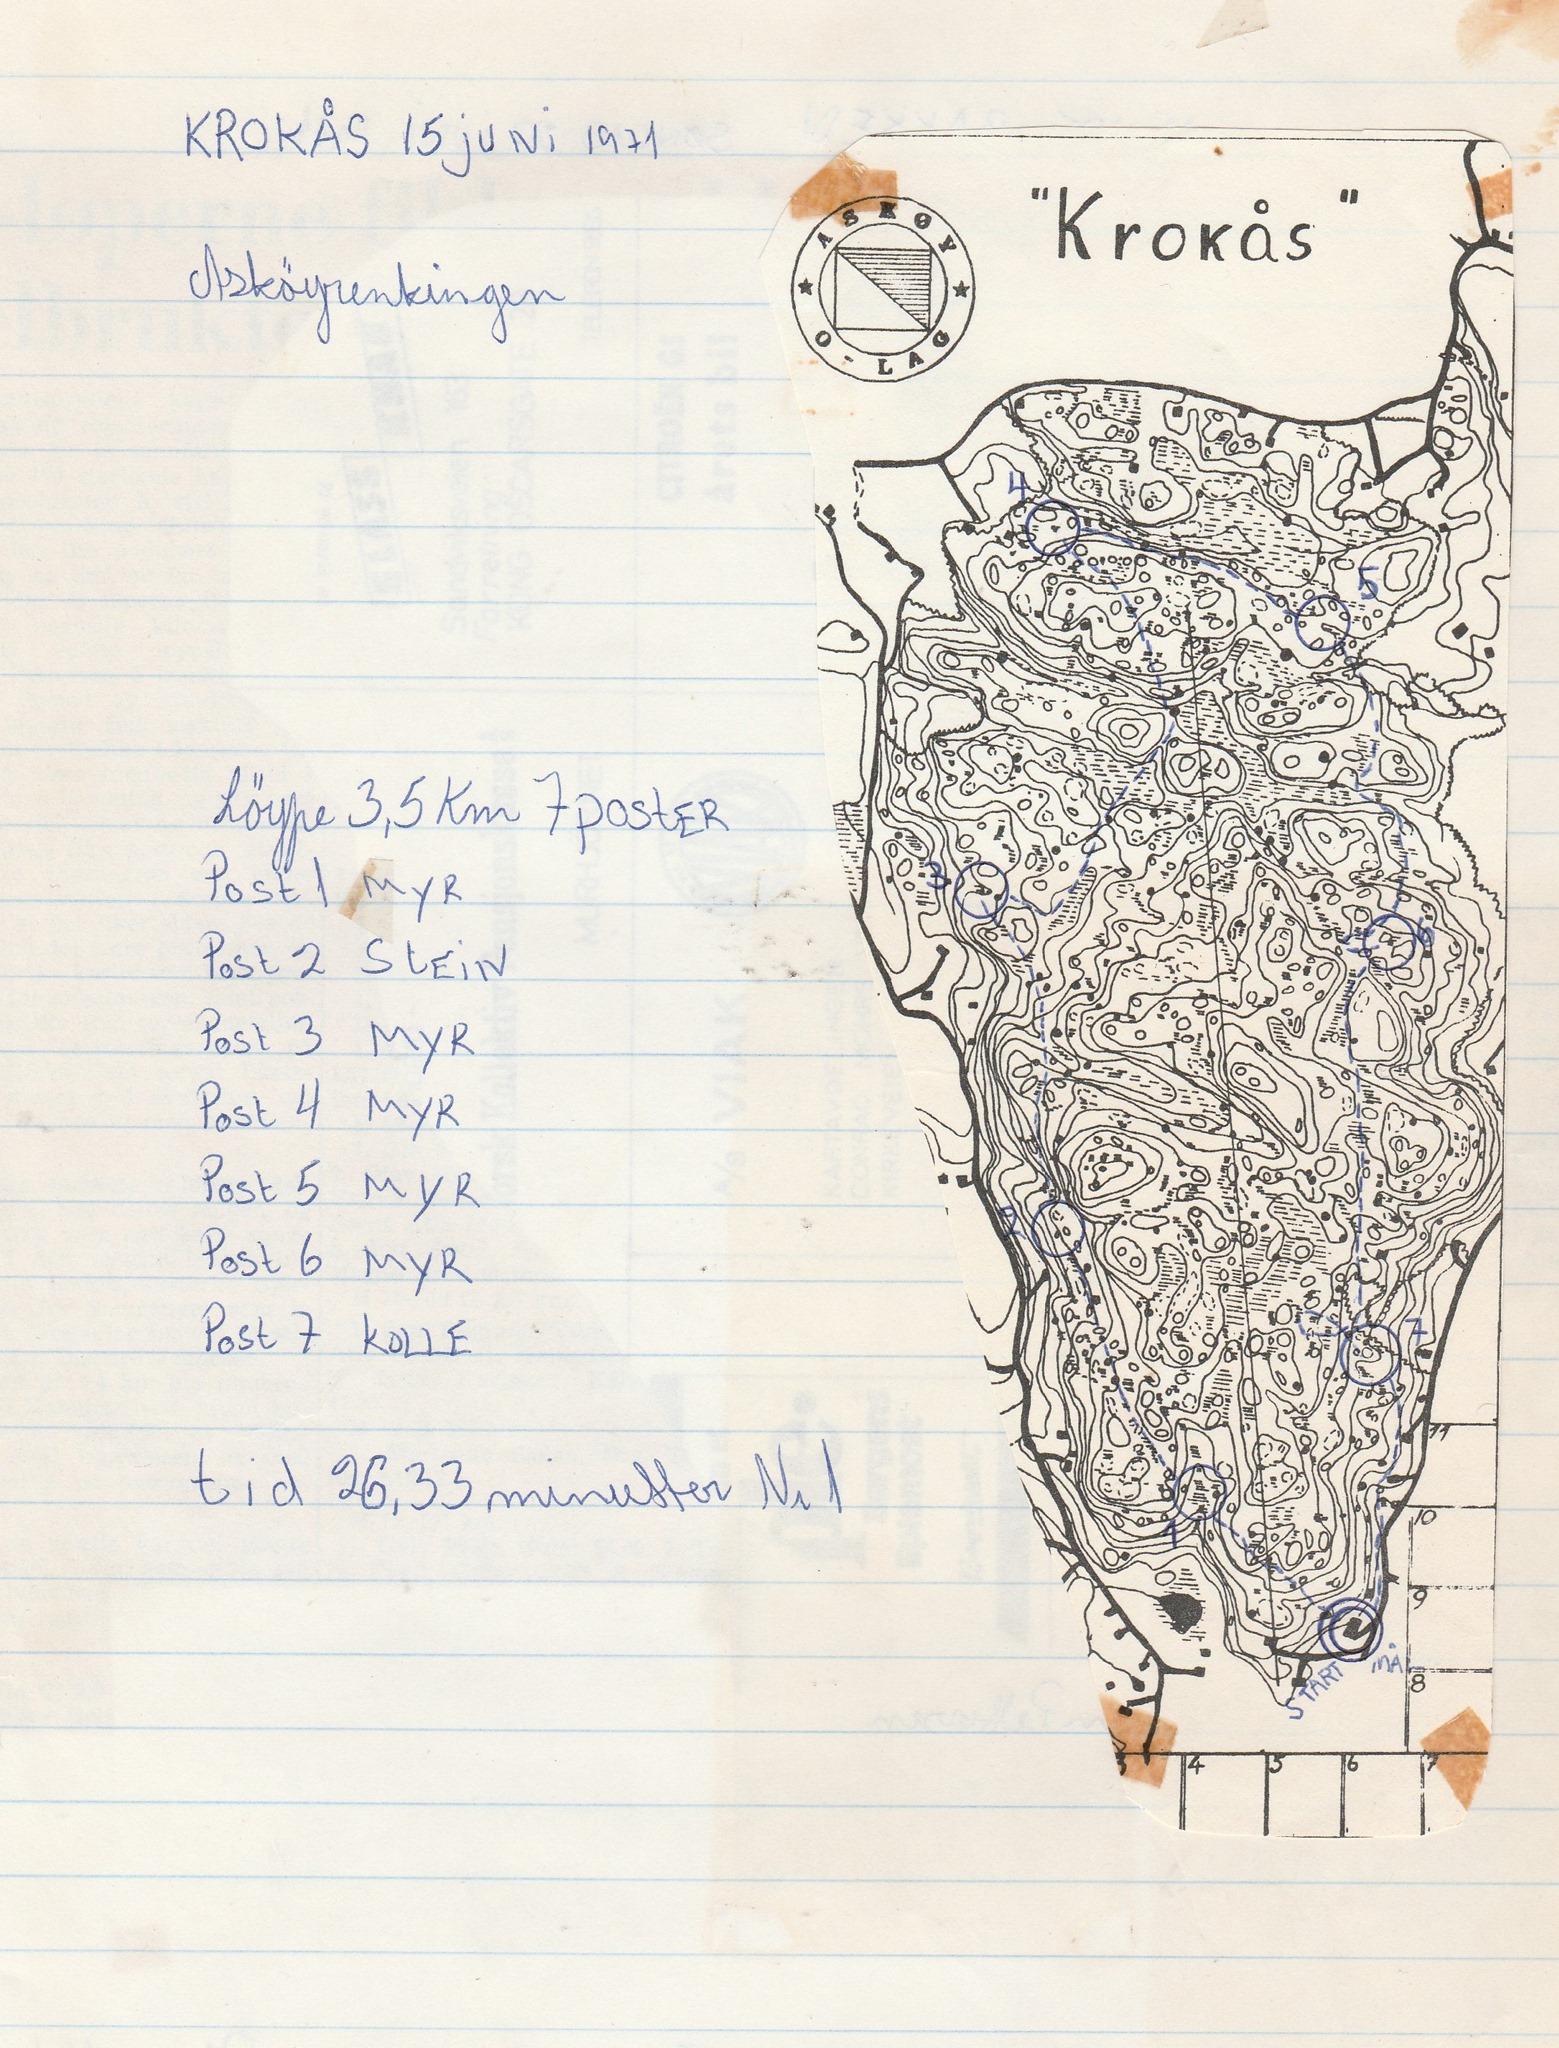 KROKÅS 15 juni 1971
Asköyrenkingen
Löype 3,5 Km 7 POSTER
Post 1 MYR
Post 2 STEIN
Post 3 MYR
Post 4 MYR
Post 5 MYR
Post 6 MYR
Post 7 KOLLE
tid 26,33 minutter Nr 1
"Krokås"
ASKØY
O-LAG
4
5
3
6
2
7
1
START
MÅL
11
10
9
8
3 4 5 6 7